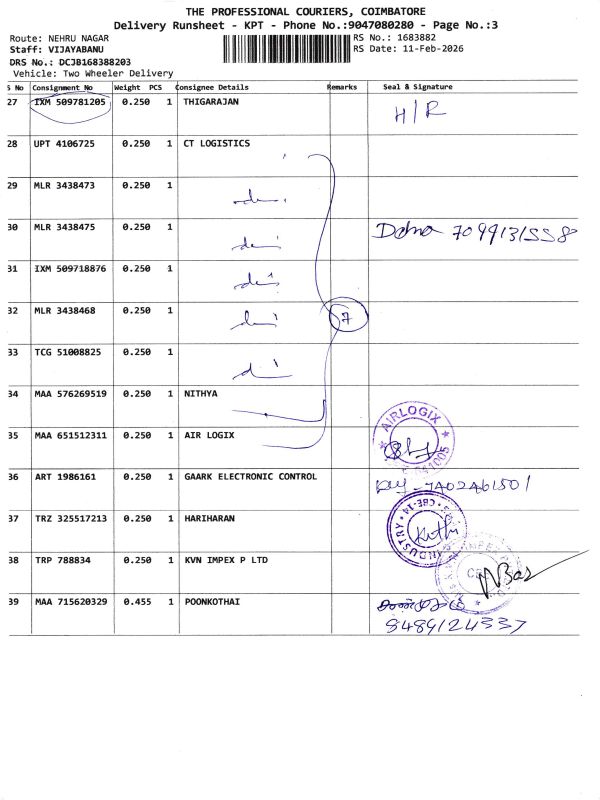 THE PROFESSIONAL COURIERS, COIMBATORE
Delivery Runsheet - KPT - Phone No.:9047080280 - Page No.:3
Route: NEHRU NAGAR
RS No.: 1683882
Staff: VIJAYABANU
RS Date: 11-Feb-2026
DRS No.: DCJB168388203
Vehicle: Two Wheeler Delivery
S No Consignment No Weight PCS Consignee Details Remarks Seal & Signature
27 IXM 509781205 0.250 1 THIGARAJAN H/R
28 UPT 4106725 0.250 1 CT LOGISTICS
29 MLR 3438473 0.250 1
30 MLR 3438475 0.250 1
31 IXM 509718876 0.250 1
32 MLR 3438468 0.250 1 7
33 TCG 51008825 0.250 1
34 MAA 576269519 0.250 1 NITHYA
35 MAA 651512311 0.250 1 AIR LOGIX AIRLOGIX
36 ART 1986161 0.250 1 GAARK ELECTRONIC CONTROL
37 TRZ 325517213 0.250 1 HARIHARAN INDUSTRY CBE-14
38 TRP 788834 0.250 1 KVN IMPEX P LTD
39 MAA 715620329 0.455 1 POONKOTHAI
8489124337